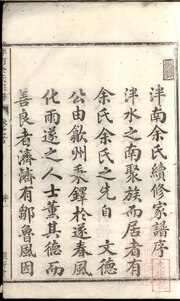 泮南余氏續修家譜序
泮水之南聚族而居者有
余氏余氏之先自 文德
公由歙州秉鐸於遂春風
化雨遂之人士薰其德而
善良者濟濟有鄒魯風因